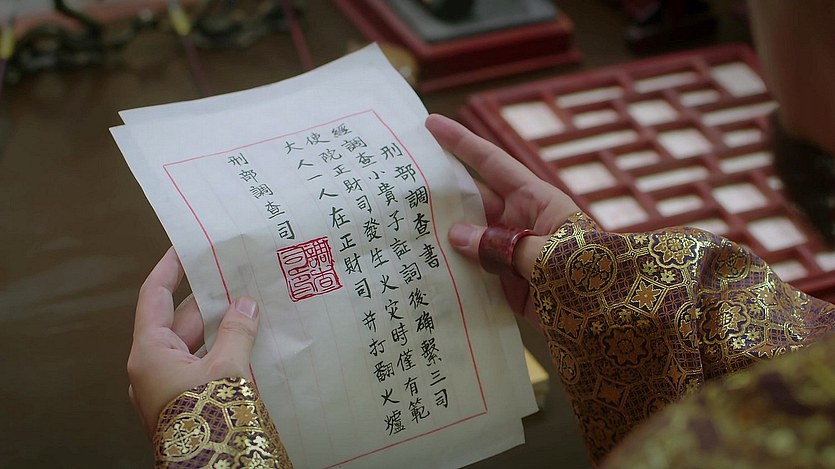 刑部調查書
經調查小貴子証詞後确繫三司
使院正財司發生火灾時僅有範
大人一人在正財司并打翻火爐
刑部調查司